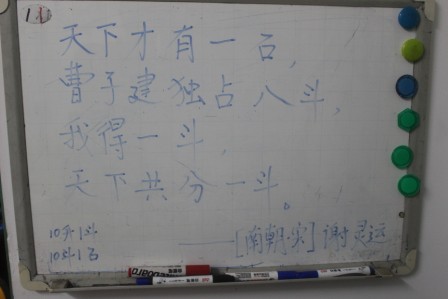 天下才有一石，
曹子建独占八斗，
我得一斗，
天下共分一斗。
——[南朝·宋]谢灵运
10升1斗
10斗1石